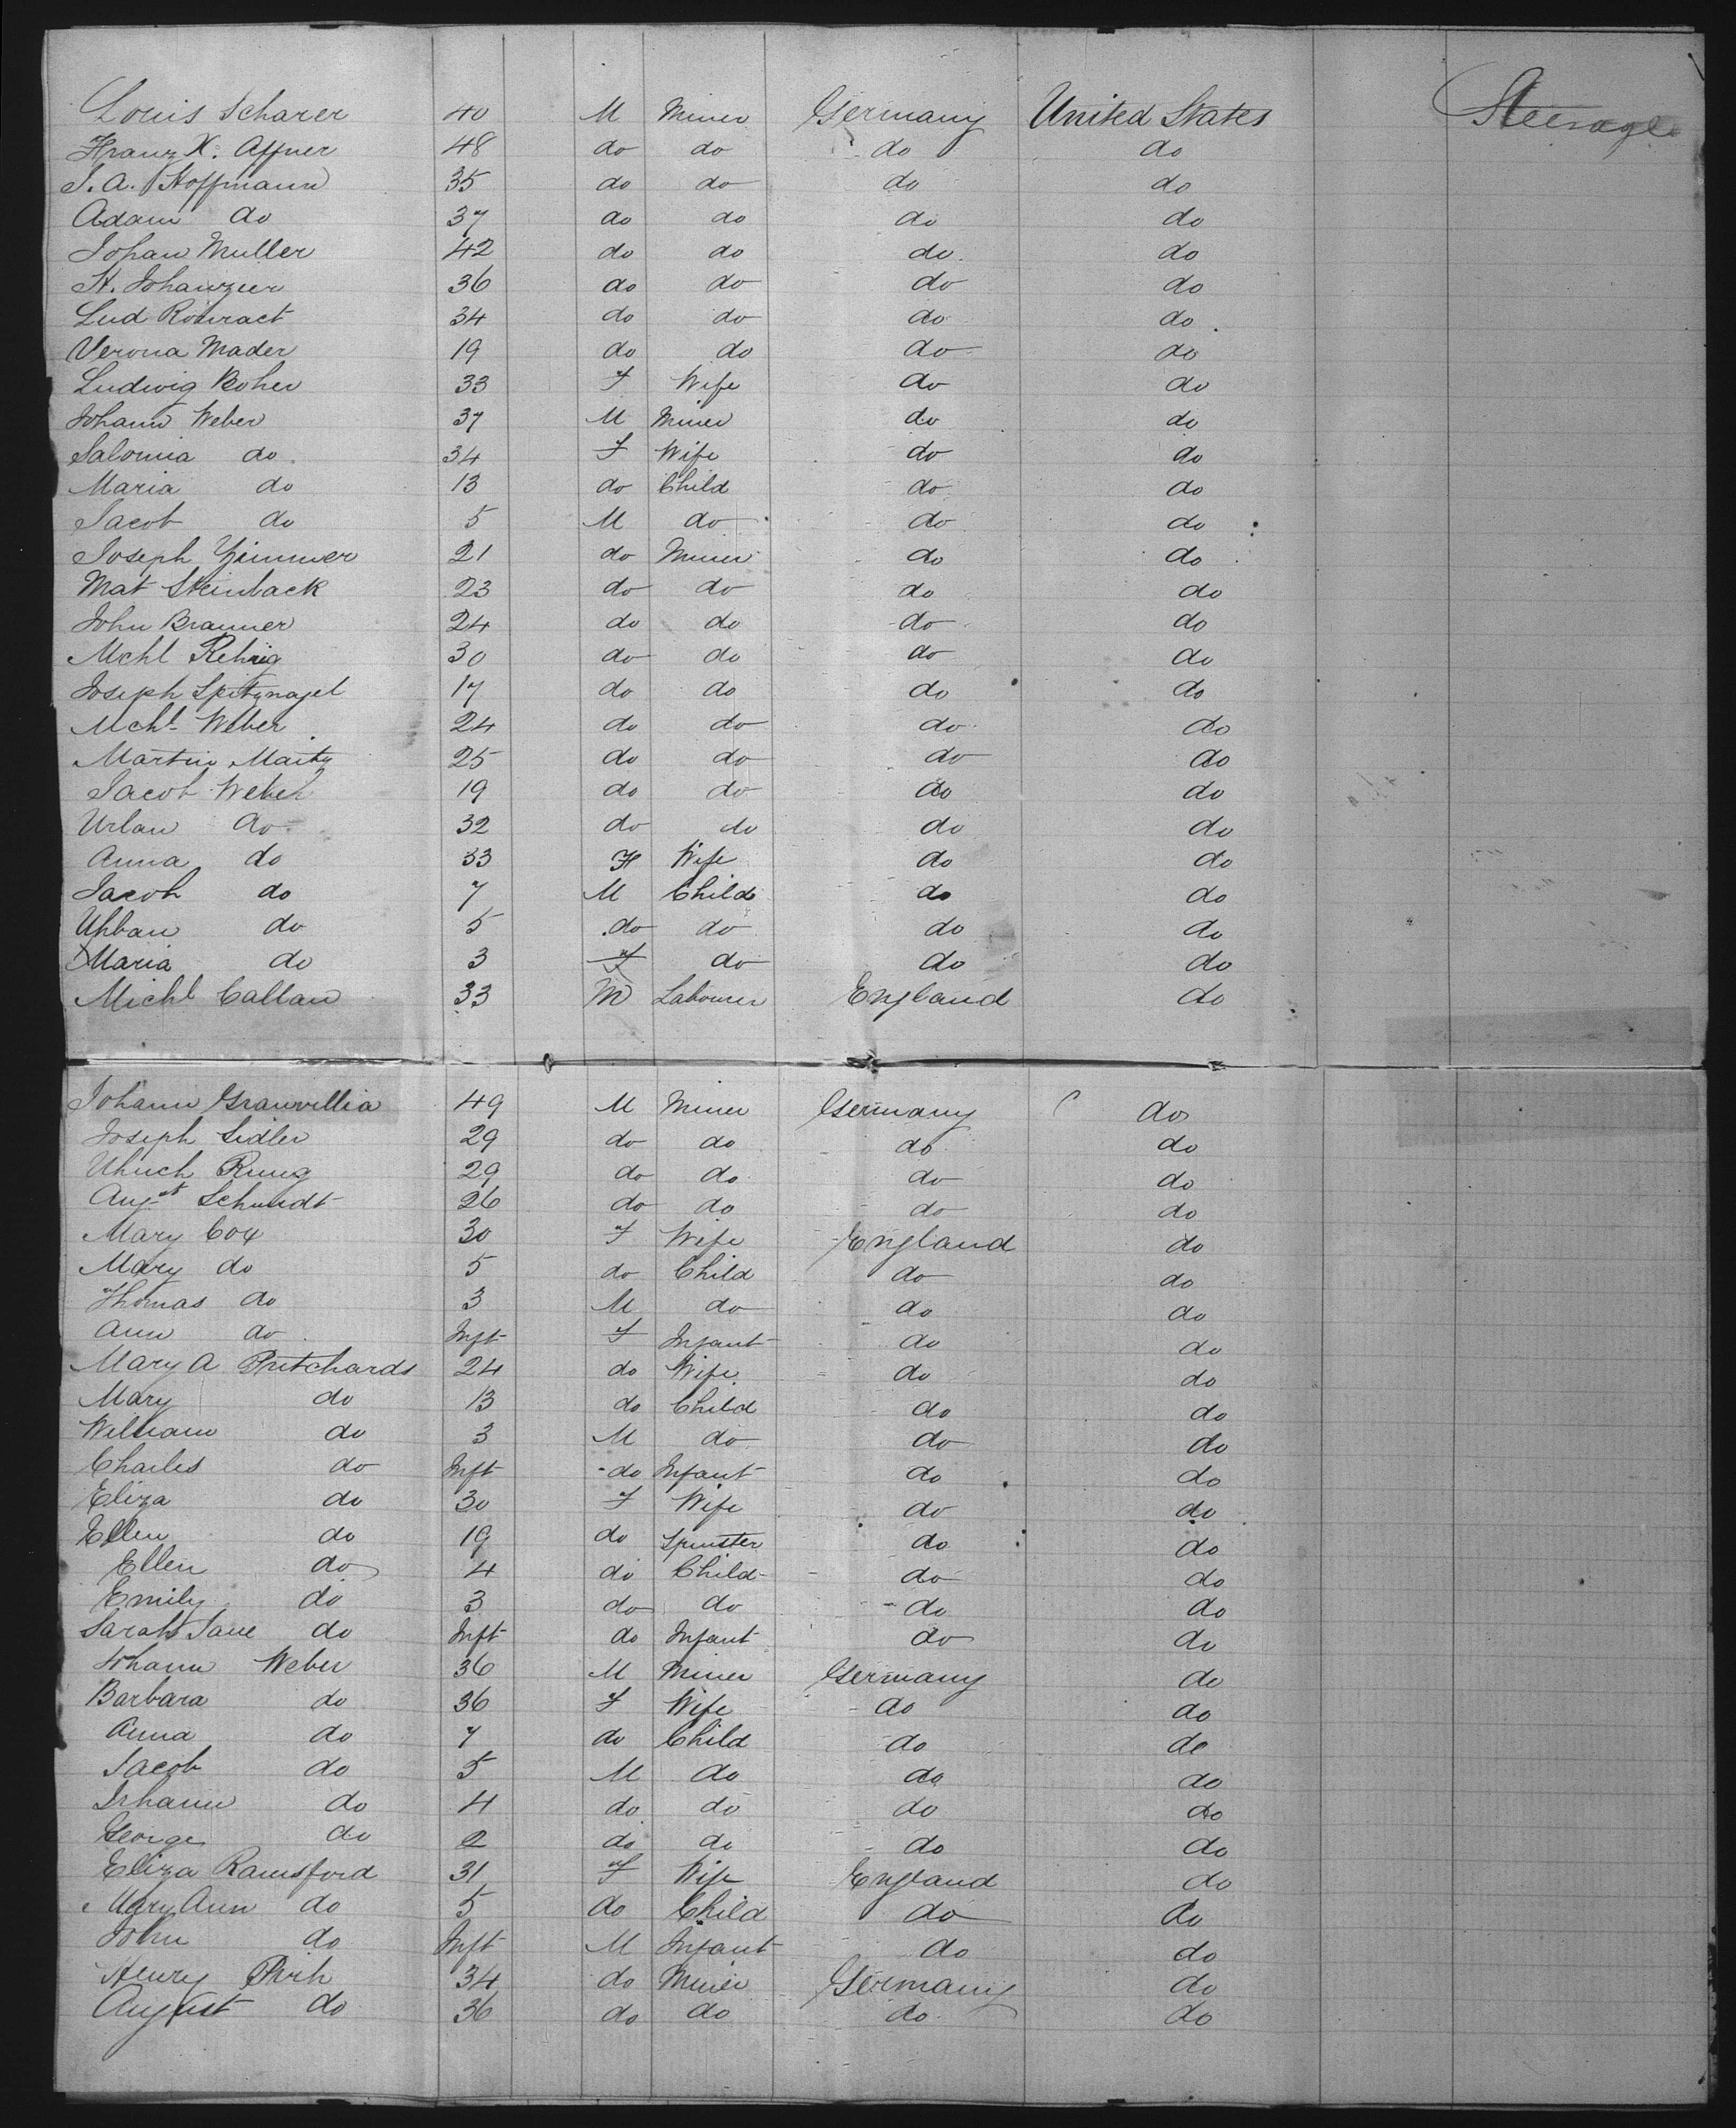 Louis Scharer 40 M Miner Germany United States Steerage
Franz X. Affner 48 do do do do
J. A. Hoffmann 35 do do do do
Adam do 37 do do do do
Johan Muller 42 do do do do
H. 36 do do do do
Lud 34 do do do do
Verona Mader 19 do do do do
Ludwig Boher 33 F Wife do do
Johann Weber 37 M Miner do do
Salomia do 34 F Wife do do
Maria do 13 do Child do do
Jacob do 5 M do do do
Joseph Zimmer 21 do Miner do do
Mat Steinback 23 do do do do
John Branner 24 do do do do
Mchl Rehrig 30 do do do do
Joseph Spitznagel 17 do do do do
Mchl Weber 24 do do do do
Martin Maitz 25 do do do do
Jacob Weber 19 do do do do
Urban do 32 do do do do
Anna do 33 F Wife do do
Jacob do 7 M Child do do
Uhban do 5 do do do do
Maria do 3 F do do do
Michl Callan 33 M Labourer England do
Johann Granvillia 49 M Miner Germany do
Joseph Sidler 29 do do do do
Ulrich Rung 29 do do do do
Augst Schmidt 26 do do do do
Mary Cox 30 F Wife England do
Mary do 5 do Child do do
Thomas do 3 M do do do
Ann do Inft F Infant do do
Mary A Pritchards 24 do Wife do do
Mary do 13 do Child do do
William do 3 M do do do
Charles do Inft do Infant do do
Eliza do 30 F Wife do do
Ellen do 19 do Spinster do do
Ellen do 4 do Child do do
Emily do 3 do do do do
Sarah Jane do Inft do Infant do do
Johann Weber 36 M Miner Germany do
Barbara do 36 F Wife do do
Anna do 7 do Child do do
Jacob do 5 M do do do
Johann do 4 do do do do
George do 2 do do do do
Eliza Ramsford 31 F Wife England do
Mary Ann do 5 do Child do do
John do Inft M Infant do do
Henry Pirh 34 do Miner Germany do
August do 36 do do do do